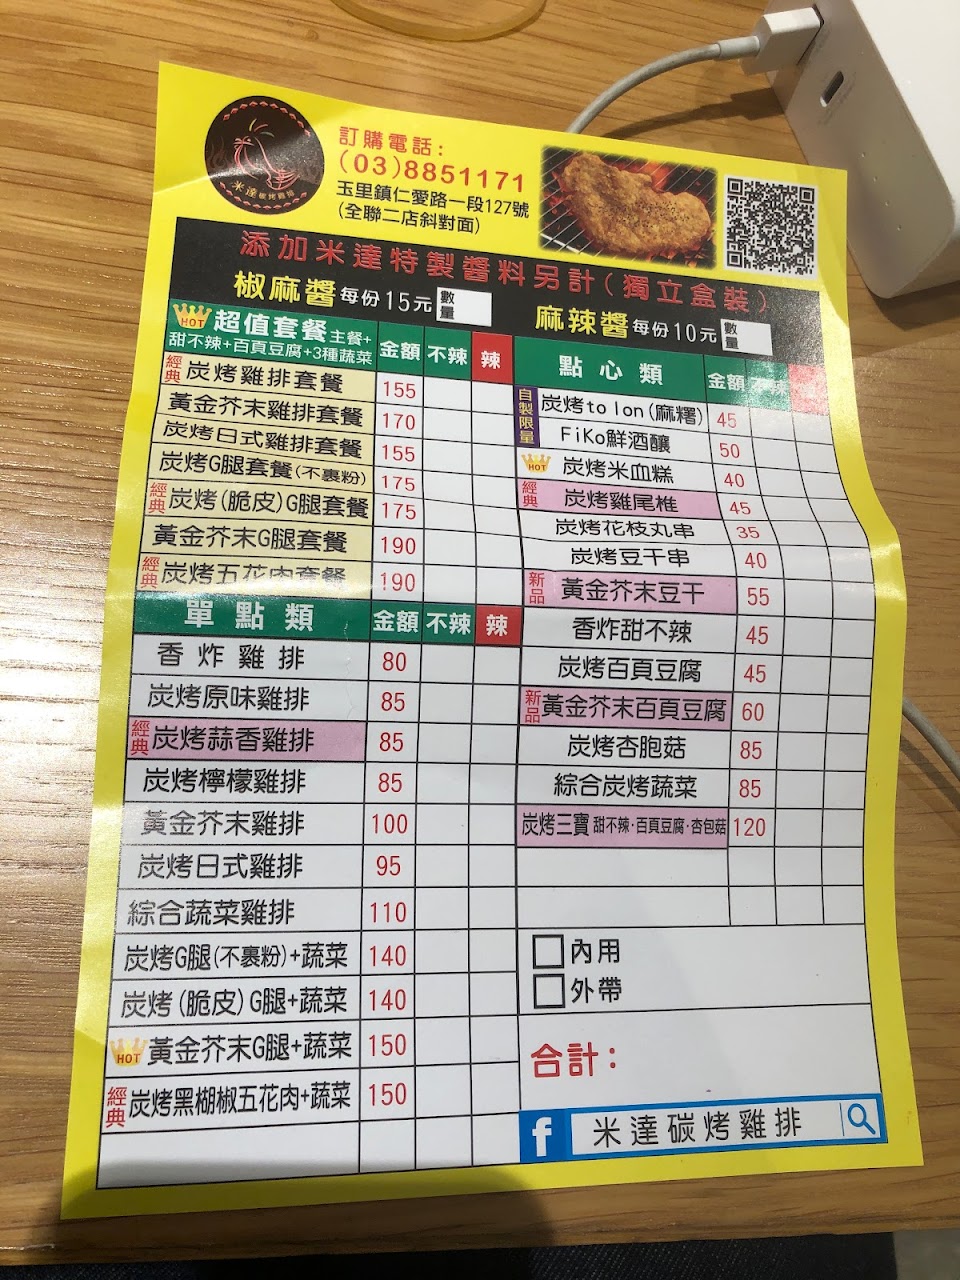 米達碳烤雞排
訂購電話:
(03)8851171
玉里鎮仁愛路一段127號
(全聯二店斜對面)
添加米達特製醬料另計(獨立盒裝)
椒麻醬 每份15元 數量
麻辣醬 每份10元 數量
HOT 超值套餐 主餐+
甜不辣+百頁豆腐+3種蔬菜 金額 不辣 辣
經典 炭烤雞排套餐 155
黃金芥末雞排套餐 170
炭烤日式雞排套餐 155
炭烤G腿套餐(不裹粉) 175
經典 炭烤(脆皮)G腿套餐 175
黃金芥末G腿套餐 190
經典 炭烤五花肉套餐 190
單點類 金額 不辣 辣
香炸雞排 80
炭烤原味雞排 85
經典 炭烤蒜香雞排 85
炭烤檸檬雞排 85
黃金芥末雞排 100
炭烤日式雞排 95
綜合蔬菜雞排 110
炭烤G腿(不裹粉)+蔬菜 140
炭烤(脆皮)G腿+蔬菜 140
HOT 黃金芥末G腿+蔬菜 150
經典 炭烤黑椒五花肉+蔬菜 150
點心類 金額 不辣 辣
自製限量 炭烤to lon(麻糬) 45
FiKo鮮酒釀 50
HOT 炭烤米血糕 40
經典 炭烤雞尾椎 45
炭烤花枝丸串 35
炭烤豆干串 40
新品 黃金芥末豆干 55
香炸甜不辣 45
炭烤百頁豆腐 45
新品 黃金芥末百頁豆腐 60
炭烤杏胞菇 85
綜合炭烤蔬菜 85
炭烤三寶 甜不辣·百頁豆腐·杏包菇 120
□內用
□外帶
合計:
f 米達碳烤雞排